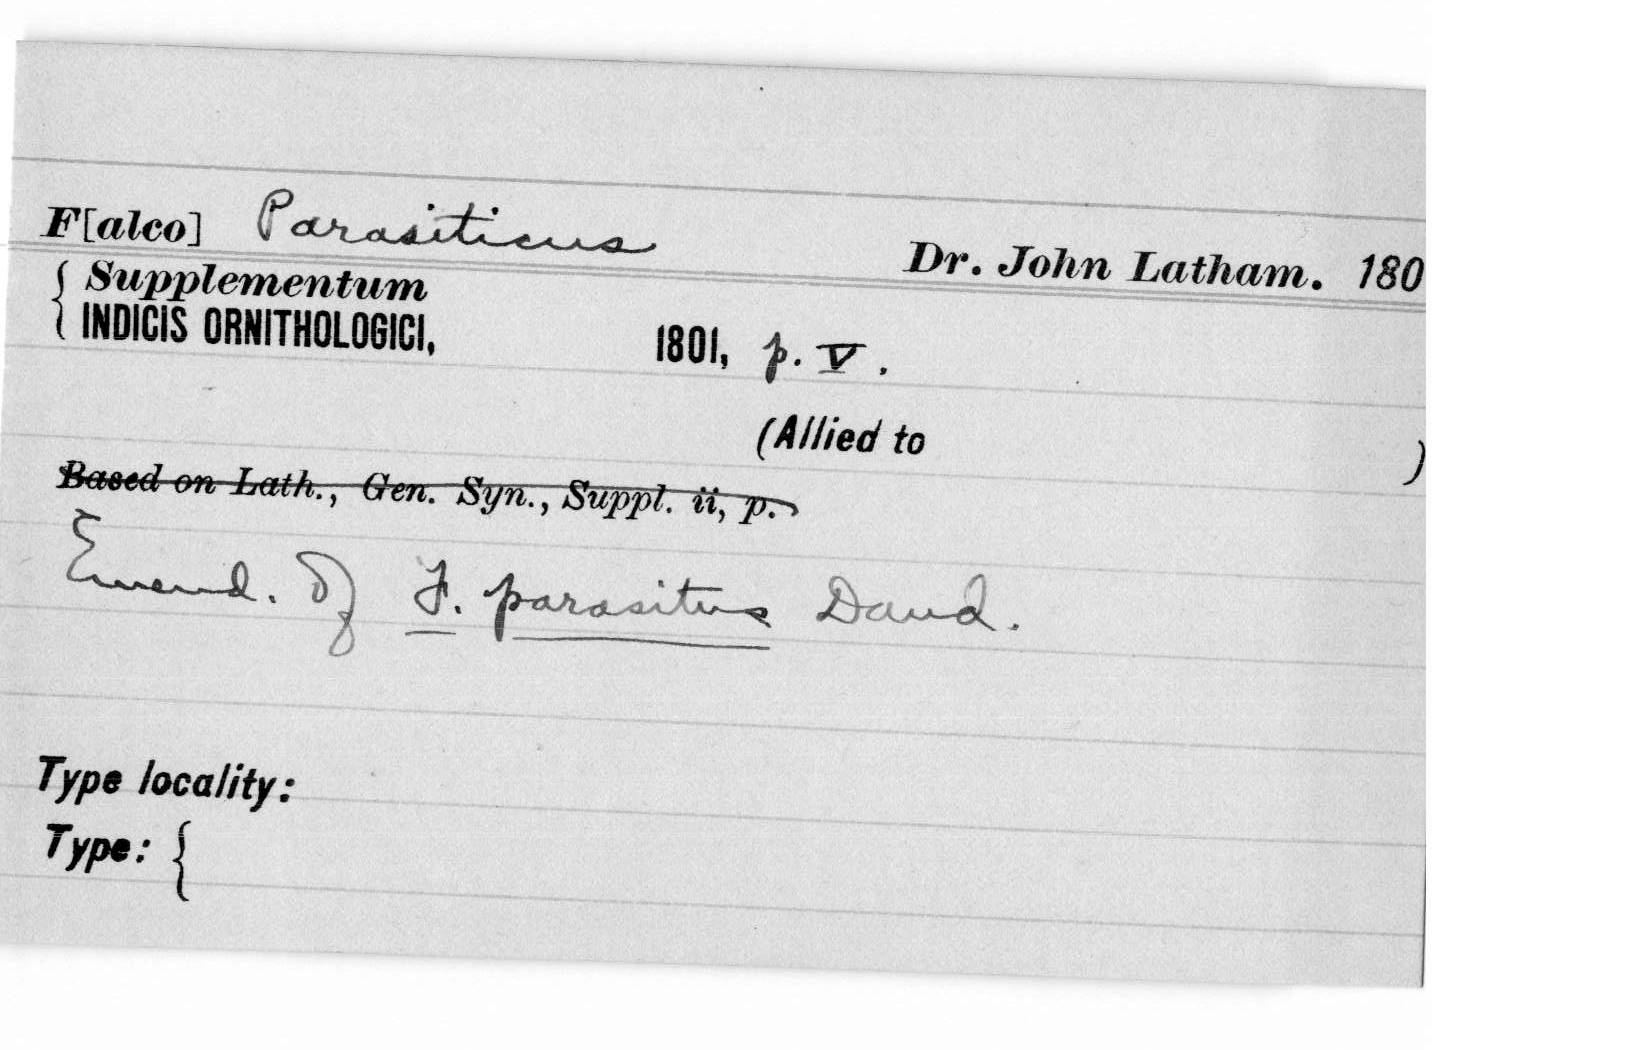 F[alco] Parasiticus Dr. John Latham. 180
{ Supplementum
INDICIS ORNITHOLOGICI, 1801, p. V.
(Allied to )
Based on Lath., Gen. Syn., Suppl. ii, p.
Emend. of F. parasitus Daud.
Type locality:
Type: {